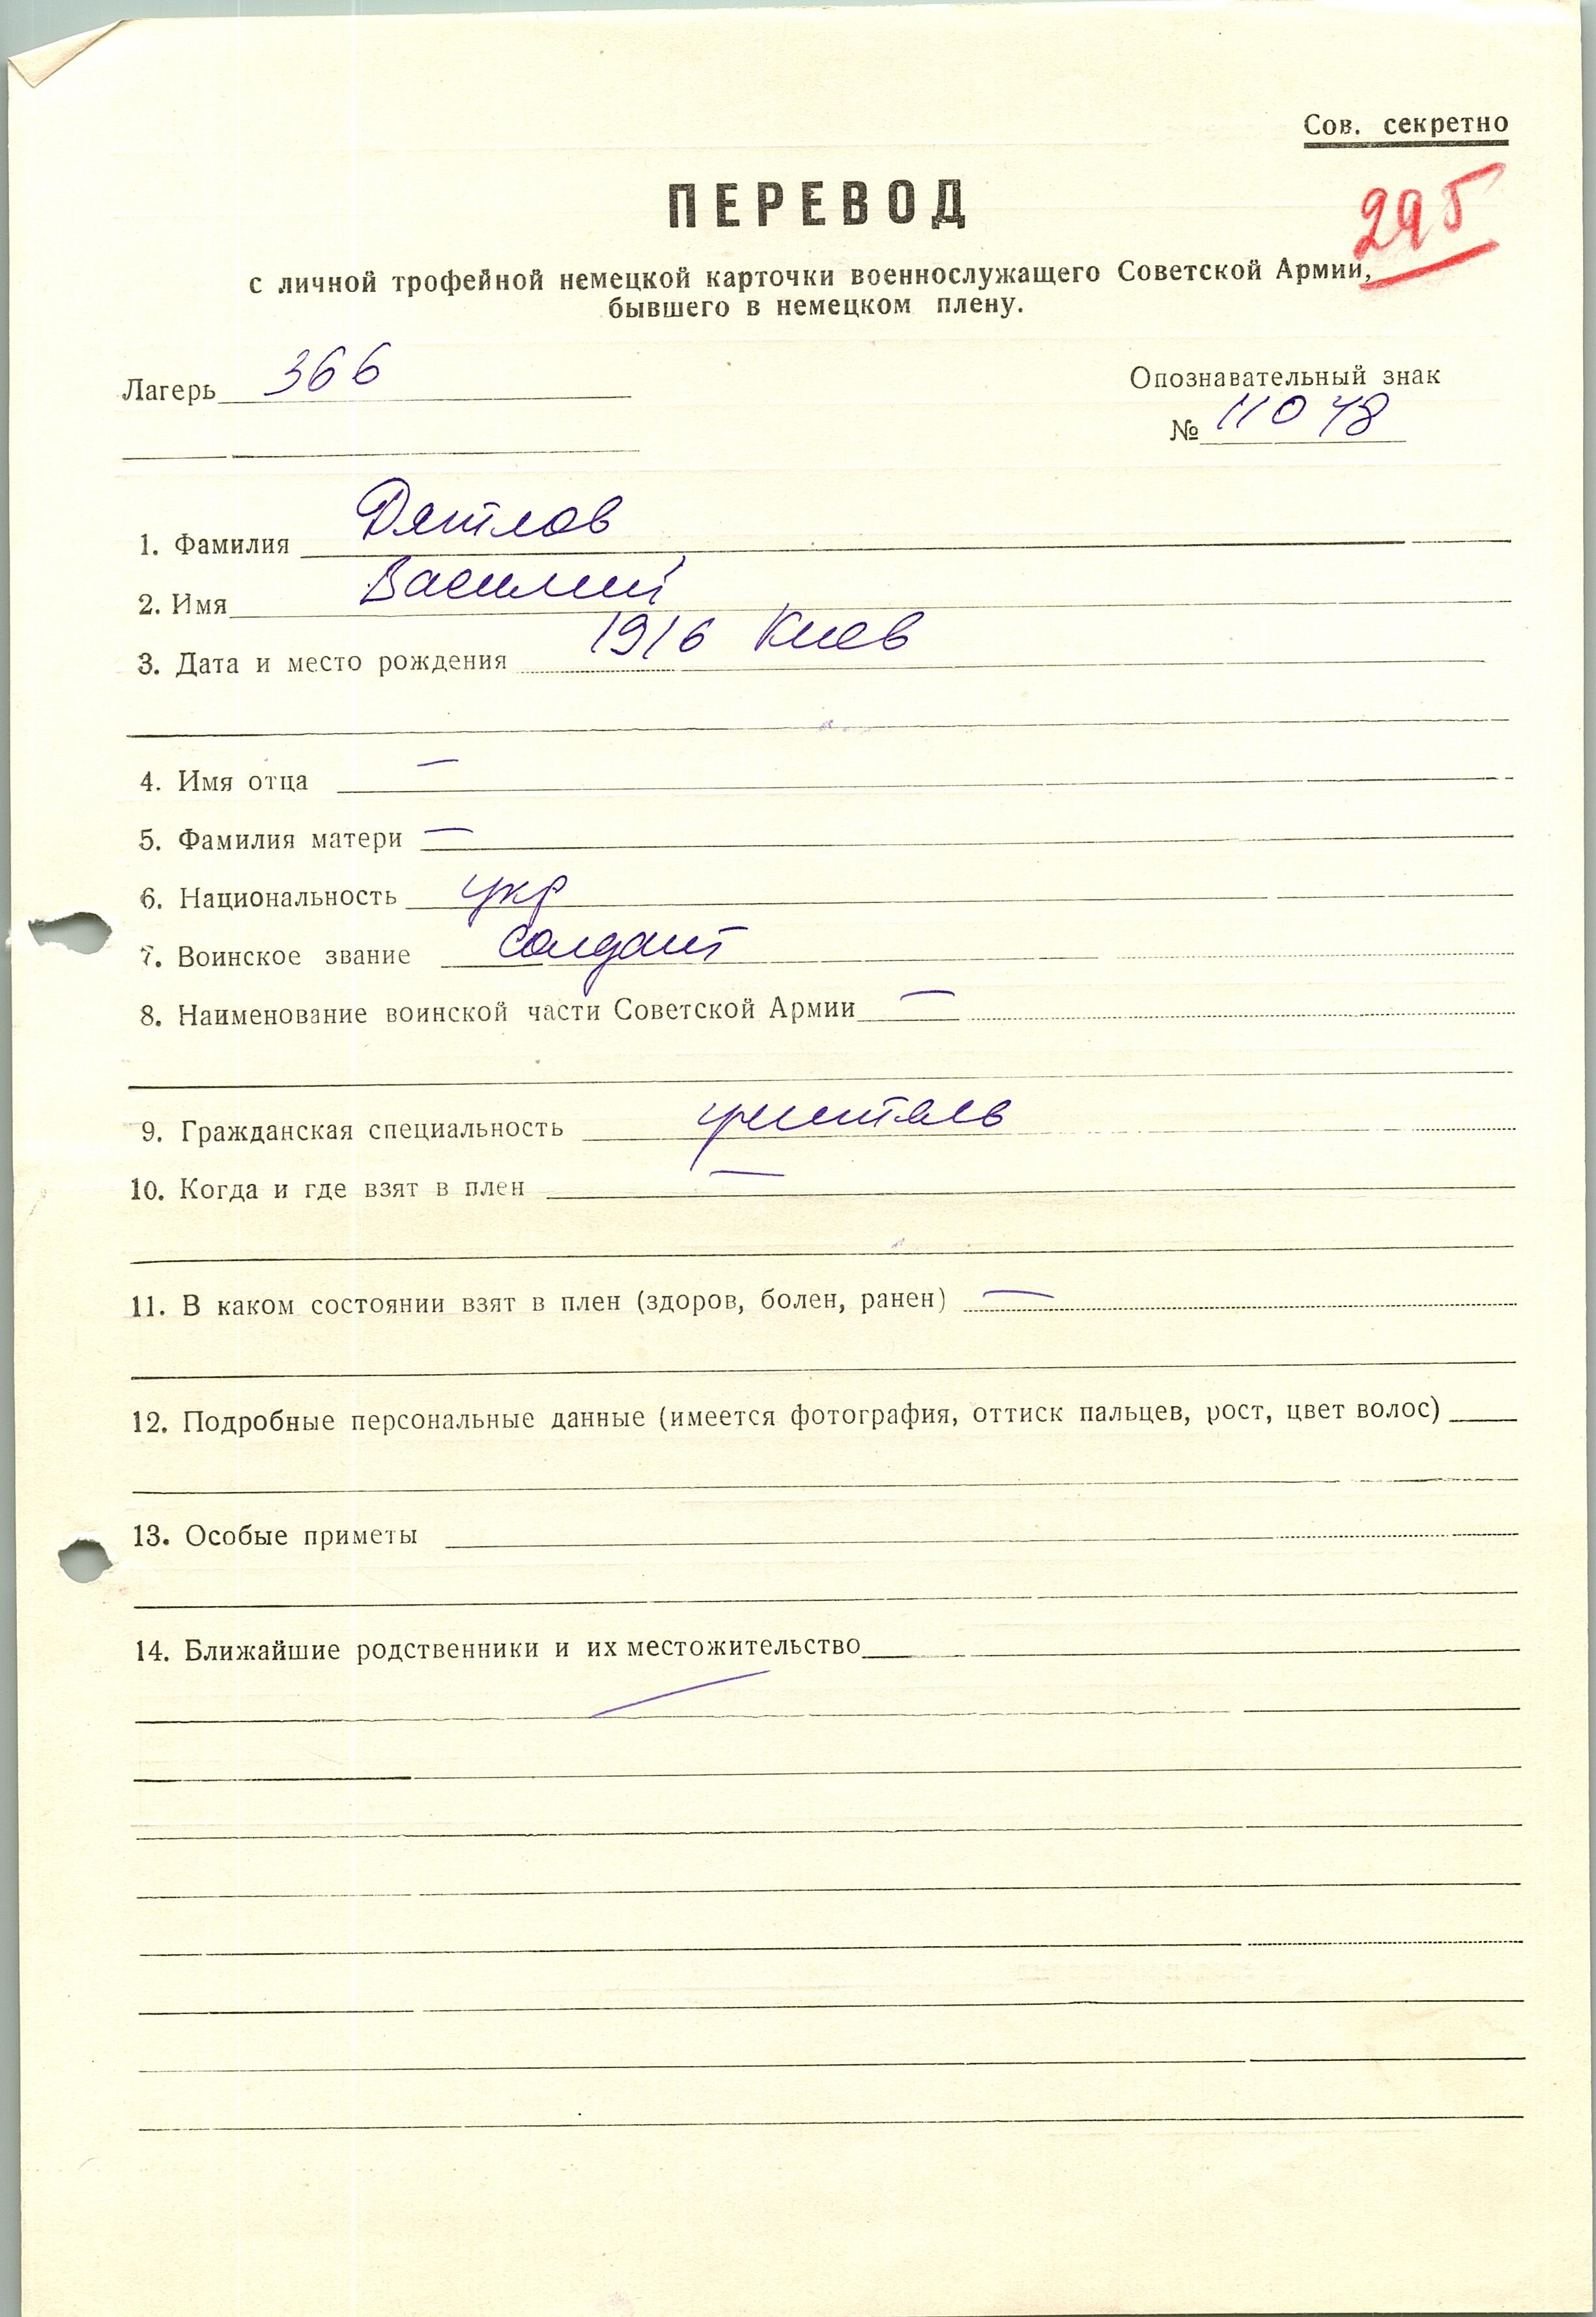 Сов. секретно
295
ПЕРЕВОД
с личной трофейной немецкой карточки военнослужащего Советской Армии,
бывшего в немецком плену.
Лагерь 366
Опознавательный знак
№ 11048
1. Фамилия Дятлов
2. Имя Василий
3. Дата и место рождения 1916 Киев
4. Имя отца —
5. Фамилия матери —
6. Национальность укр
7. Воинское звание солдат
8. Наименование воинской части Советской Армии —
9. Гражданская специальность учитель
10. Когда и где взят в плен —
11. В каком состоянии взят в плен (здоров, болен, ранен) —
12. Подробные персональные данные (имеется фотография, оттиск пальцев, рост, цвет волос)
13. Особые приметы
14. Ближайшие родственники и их местожительство